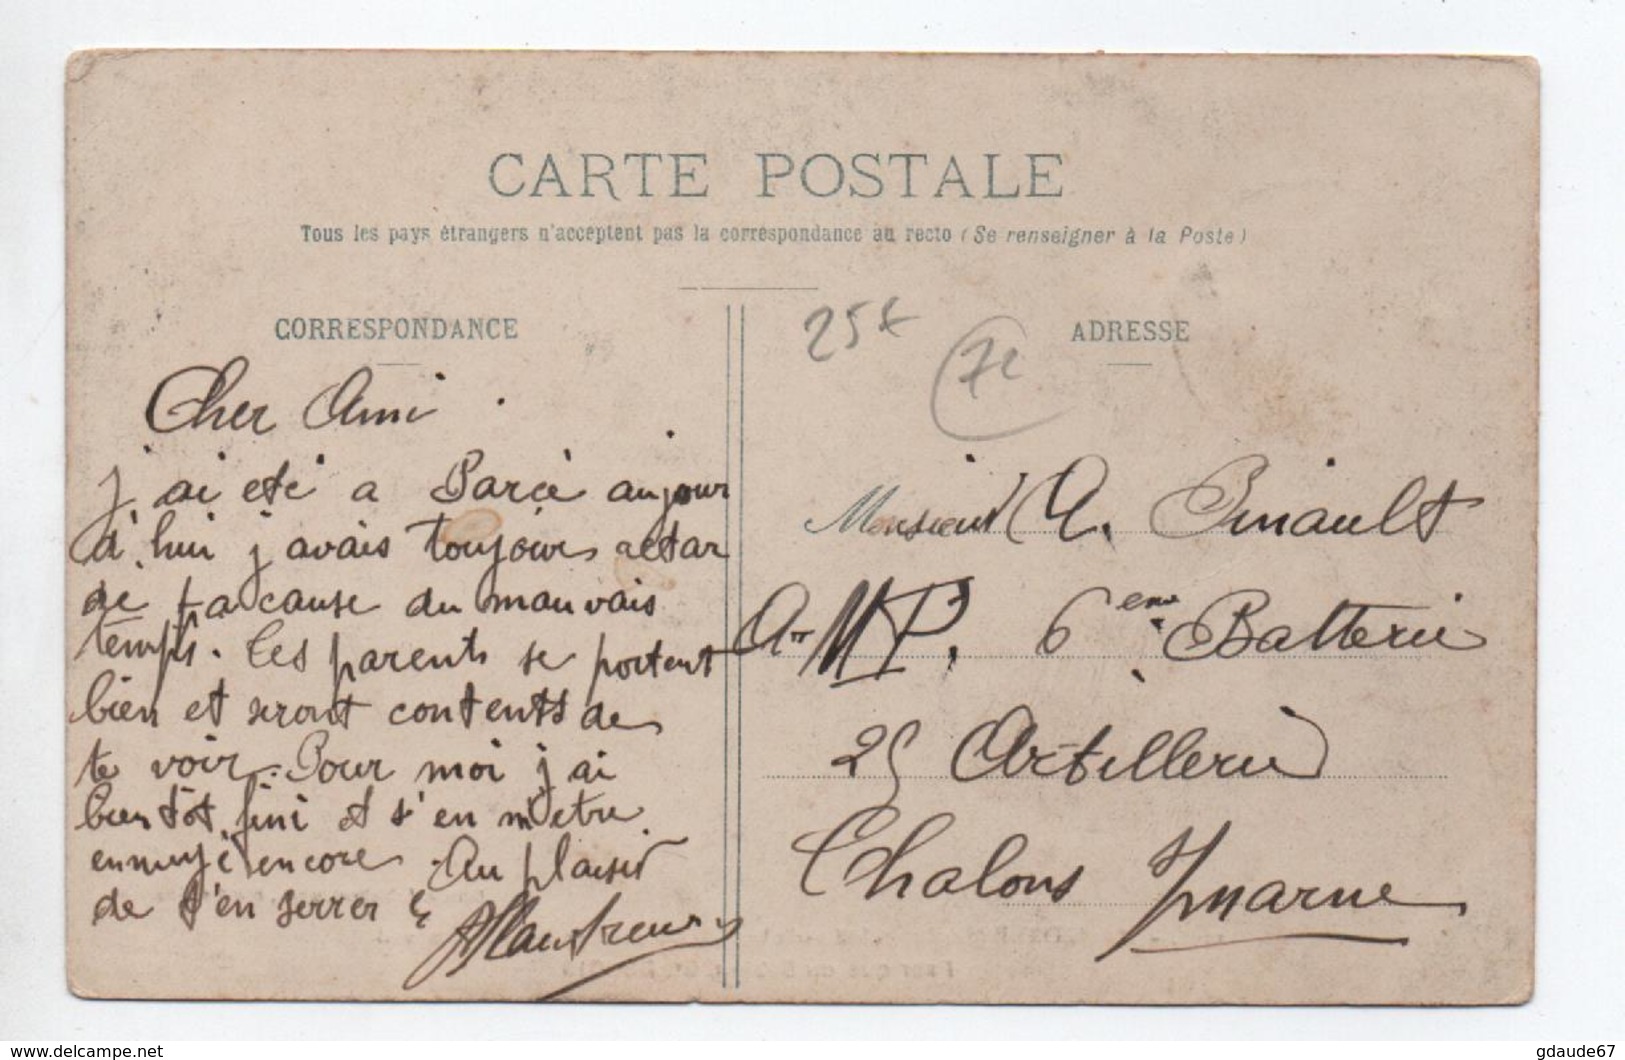 CARTE POSTALE
Tous les pays étrangers n'acceptent pas la correspondance au recto (Se renseigner à la Poste)
CORRESPONDANCE
25x
7e
ADRESSE
Cher Ami
j'ai été a Parcé aujour
d'hui j avais toujours retar
de a cause du mauvais
temps. Tes parents se portent
bien et seront contents de
te voir. Pour moi j ai
bientôt fini et s'en metre
ennuyé encore Au plaisir
de t'en serrer 5
Monsieur A. Pinault
6eme Batterie
25 Artillerie
Chalons s/ marne
delcampe.net
gdaude67